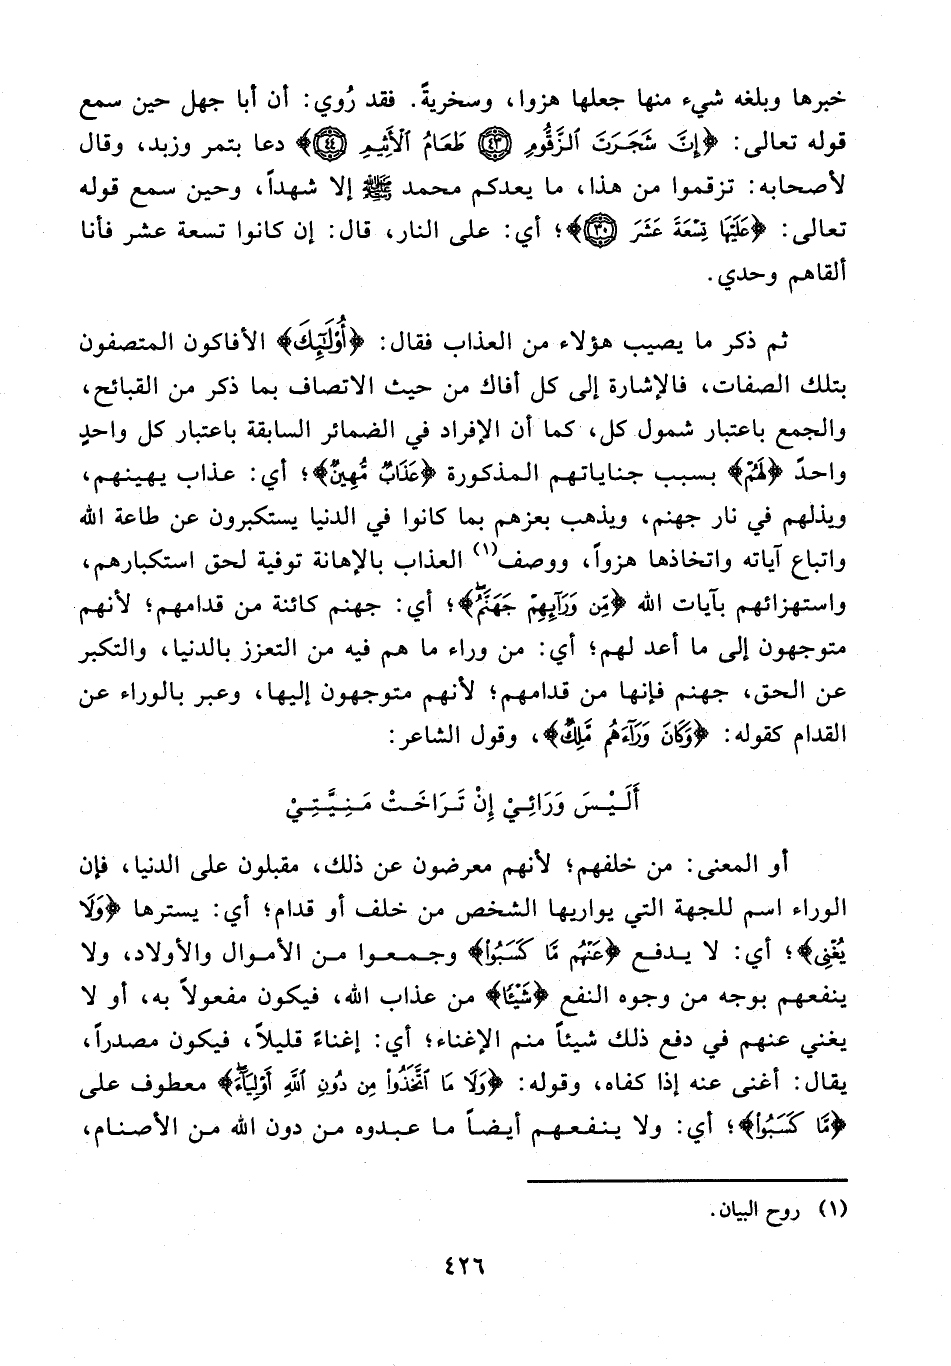 خبرها وبلغه شيء منها جعلها هزوا، وسخريةً. فقد رُوي: أن أبا جهل حين سمع
قوله تعالى: ﴿إِنَّ شَجَرَتَ ٱلزَّقُّومِ ٤٣ طَعَامُ ٱلْأَثِيمِ ٤٤﴾ دعا بتمر وزبد، وقال
لأصحابه: تزقموا من هذا، ما يعدكم محمد ﷺ إلا شهداً، وحين سمع قوله
تعالى: ﴿عَلَيْهَا تِسْعَةَ عَشَرَ ٣٠﴾؛ أي: على النار، قال: إن كانوا تسعة عشر فأنا
ألقاهم وحدي.
ثم ذكر ما يصيب هؤلاء من العذاب فقال: ﴿أُوْلَٰٓئِكَ﴾ الأفاكون المتصفون
بتلك الصفات، فالإشارة إلى كل أفاك من حيث الاتصاف بما ذكر من القبائح،
والجمع باعتبار شمول كل، كما أن الإفراد في الضمائر السابقة باعتبار كل واحدٍ
واحدً ﴿لَهُمْ﴾ بسبب جناياتهم المذكورة ﴿عَذَابٌ مُّهِينٌ﴾؛ أي: عذاب يهينهم،
ويذلهم في نار جهنم، ويذهب بعزهم بما كانوا في الدنيا يستكبرون عن طاعة الله
واتباع آياته واتخاذها هزواً، ووصف(١) العذاب بالإهانة توفية لحق استكبارهم،
واستهزائهم بآيات الله ﴿مِّن وَرَآئِهِمْ جَهَنَّمُۖ﴾؛ أي: جهنم كائنة من قدامهم؛ لأنهم
متوجهون إلى ما أعد لهم؛ أي: من وراء ما هم فيه من التعزز بالدنيا، والتكبر
عن الحق، جهنم فإنها من قدامهم؛ لأنهم متوجهون إليها، وعبر بالوراء عن
القدام كقوله: ﴿وَكَانَ وَرَآءَهُم مَّلِكٌ﴾، وقول الشاعر:
أَلَيْسَ وَرَائِيْ إِنْ تَرَاخَتْ مَنِيَّتِيْ
أو المعنى: من خلفهم؛ لأنهم معرضون عن ذلك، مقبلون على الدنيا، فإن
الوراء اسم للجهة التي يواريها الشخص من خلف أو قدام؛ أي: يسترها ﴿وَلَا
يُغْنِى﴾؛ أي: لا يدفع ﴿عَنْهُم مَّا كَسَبُواْ﴾ وجمعوا من الأموال والأولاد، ولا
ينفعهم بوجه من وجوه النفع ﴿شَيْـًٔا﴾ من عذاب الله، فيكون مفعولاً به، أو لا
يغني عنهم في دفع ذلك شيئاً منم الإغناء؛ أي: إغناءً قليلاً، فيكون مصدراً،
يقال: أغنى عنه إذا كفاه، وقوله: ﴿وَلَا مَا ٱتَّخَذُواْ مِن دُونِ ٱللَّهِ أَوْلِيَآءَۖ﴾ معطوف على
﴿مَّا كَسَبُواْ﴾؛ أي: ولا ينفعهم أيضاً ما عبدوه من دون الله من الأصنام،
(١) روح البيان.
٤٢٦